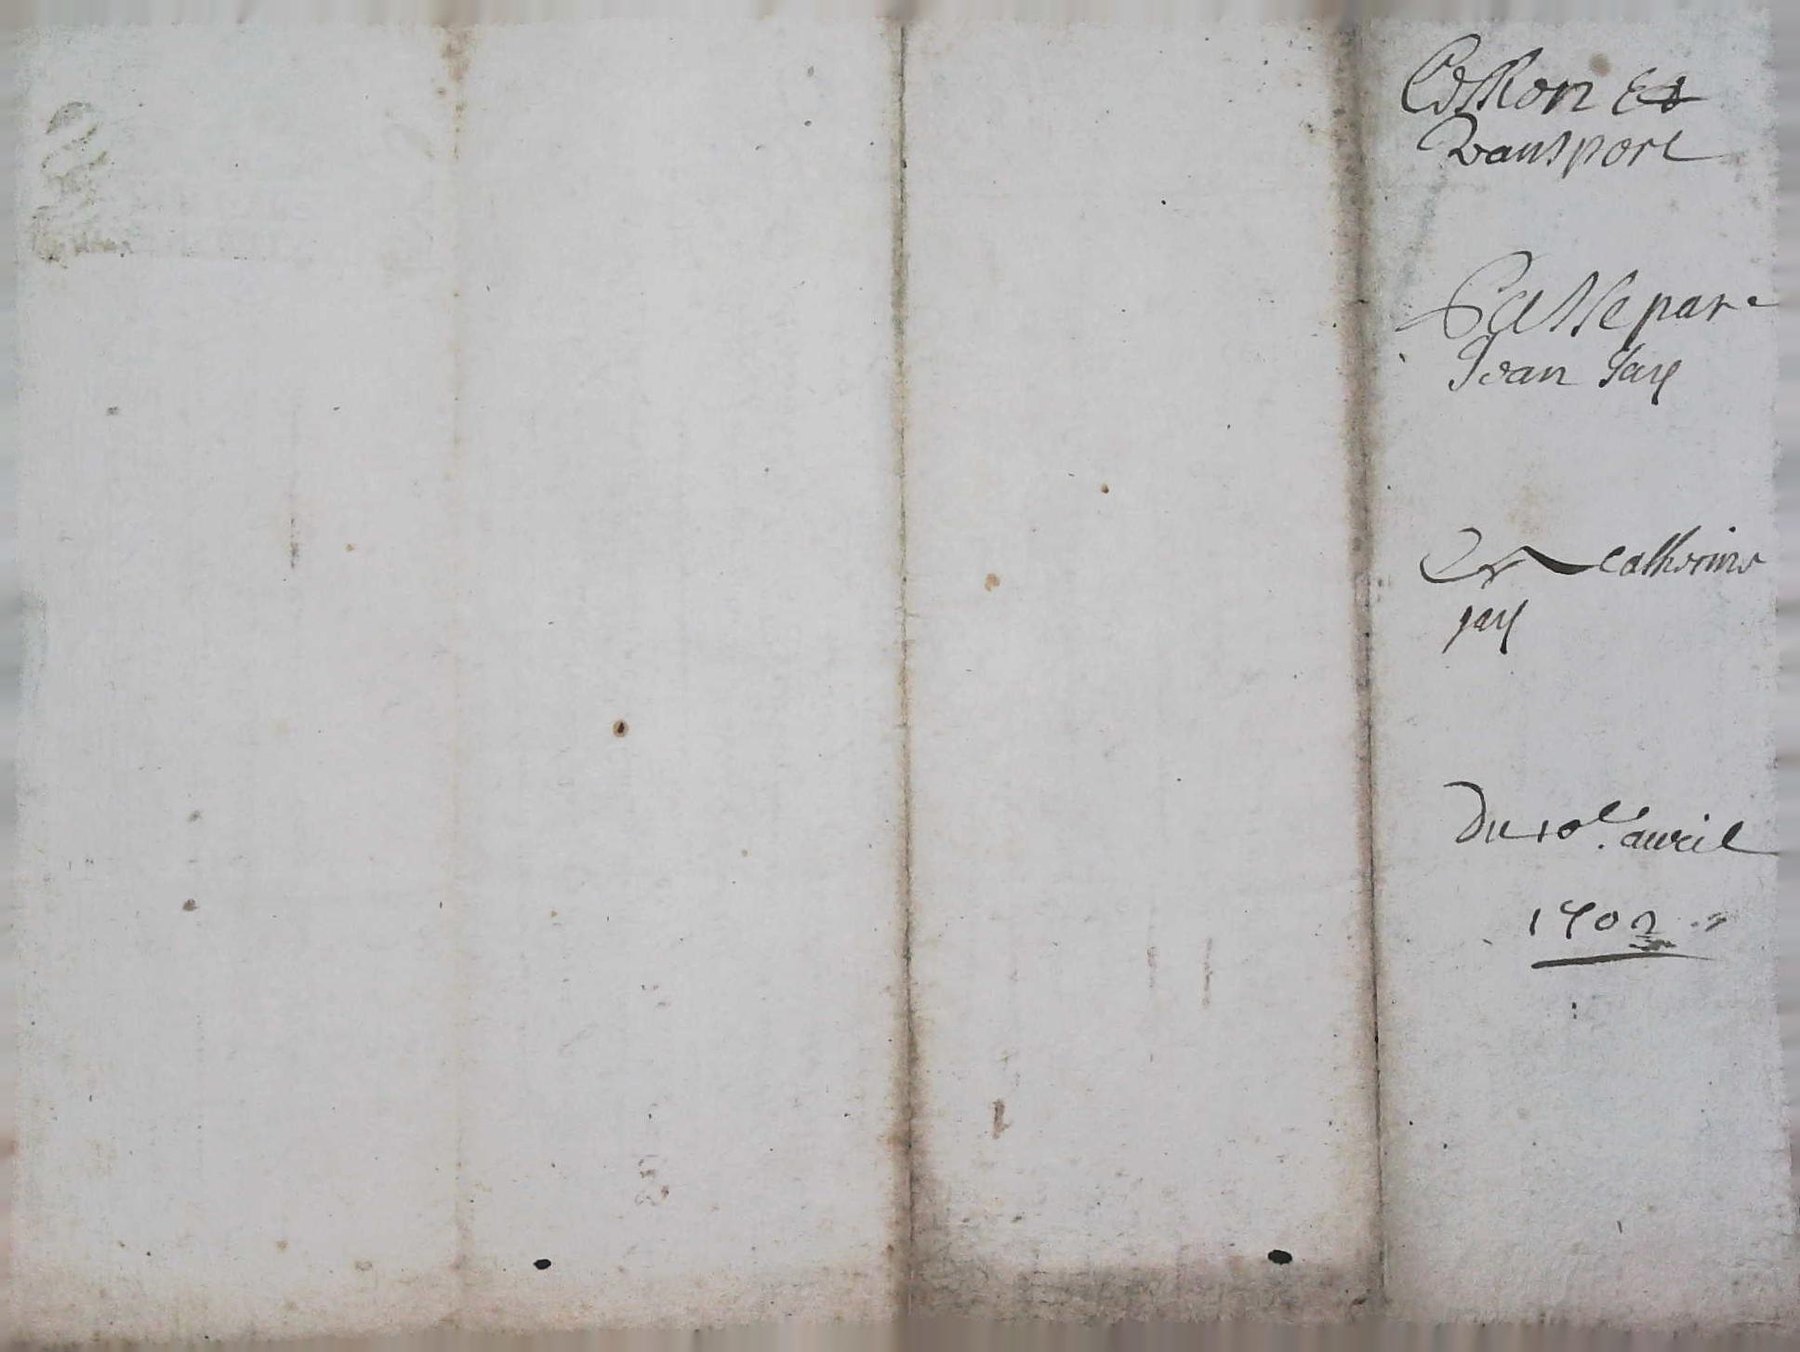 Cession Et
transport
Passe par
Jean Jay
Et catherine
jay
Du 10e. auril
1702